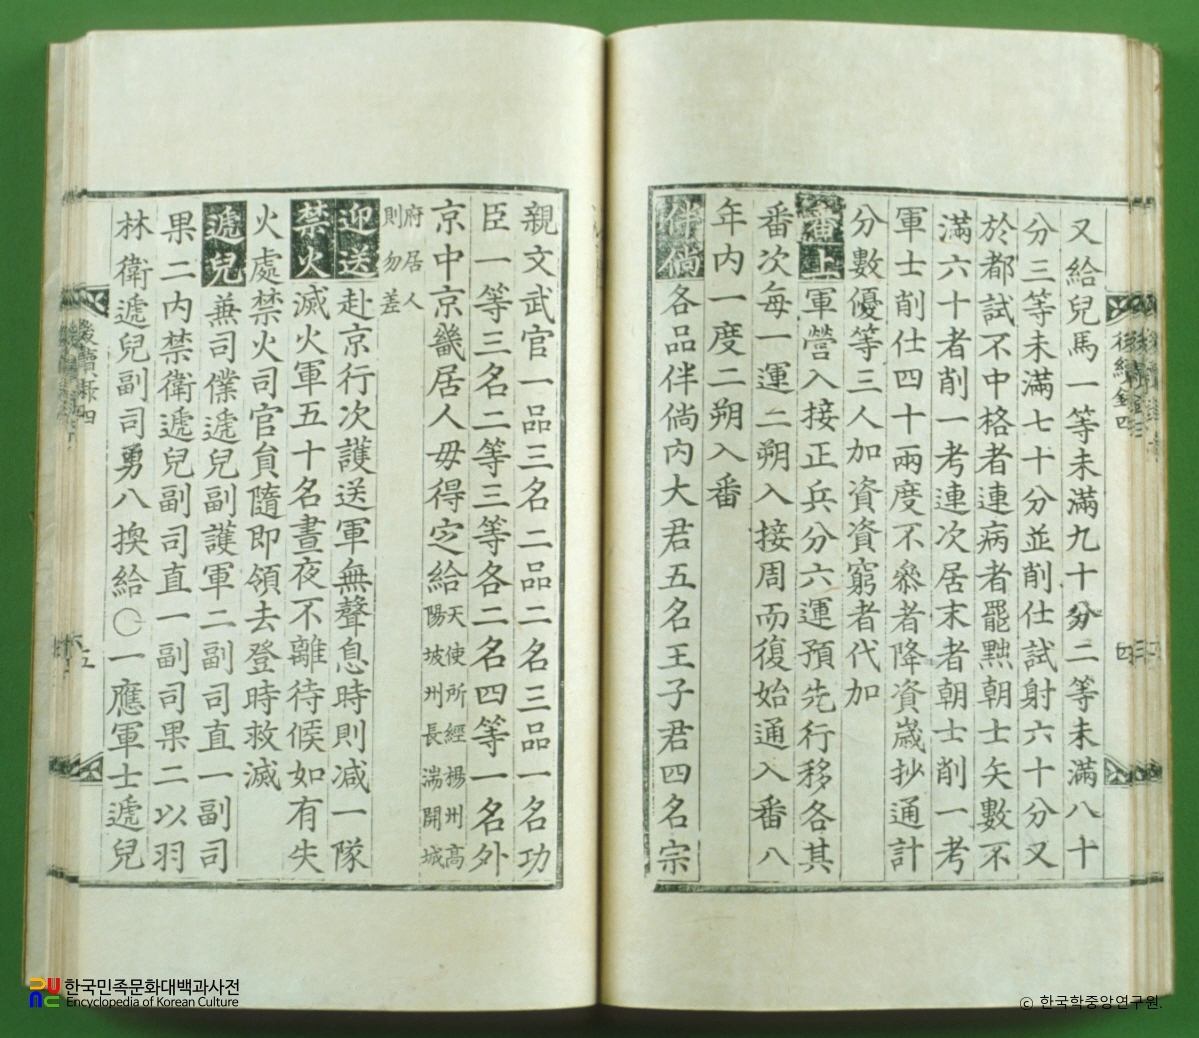 又給兒馬一等未滿九十分二等未滿八十
分三等未滿七十分並削仕試射六十分又
於都試不中格者連病者罷黜朝士矢數不
滿六十者削一考連次居末者朝士削一考
軍士削仕四十兩度不叅者降資歲抄通計
分數優等三人加資資窮者代加
軍營入接正兵分六運預先行移各其
番次每一運二朔入接周而復始通入番八
年內一度二朔入番
伴倘各品伴倘內大君五名王子君四名宗
親文武官一品三名二品二名三品一名功
臣一等三名二等三等各二名四等一名外
京中京畿居人毋得定給天使所經楊州高
陽坡州長湍開城
府居人
則勿差
迎送赴京行次護送軍無聲息時則减一隊
禁火滅火軍五十名晝夜不離待候如有失
火處禁火司官負隨即領去登時救滅
遞兒兼司僕遞兒副護軍二副司直一副司
果二內禁衛遞兒副司直一副司果二以羽
林衛遞兒副司勇八換給〇一應軍士遞兒
後續錄四
한국민족문화대백과사전
Encyclopedia of Korean Culture
© 한국학중앙연구원.